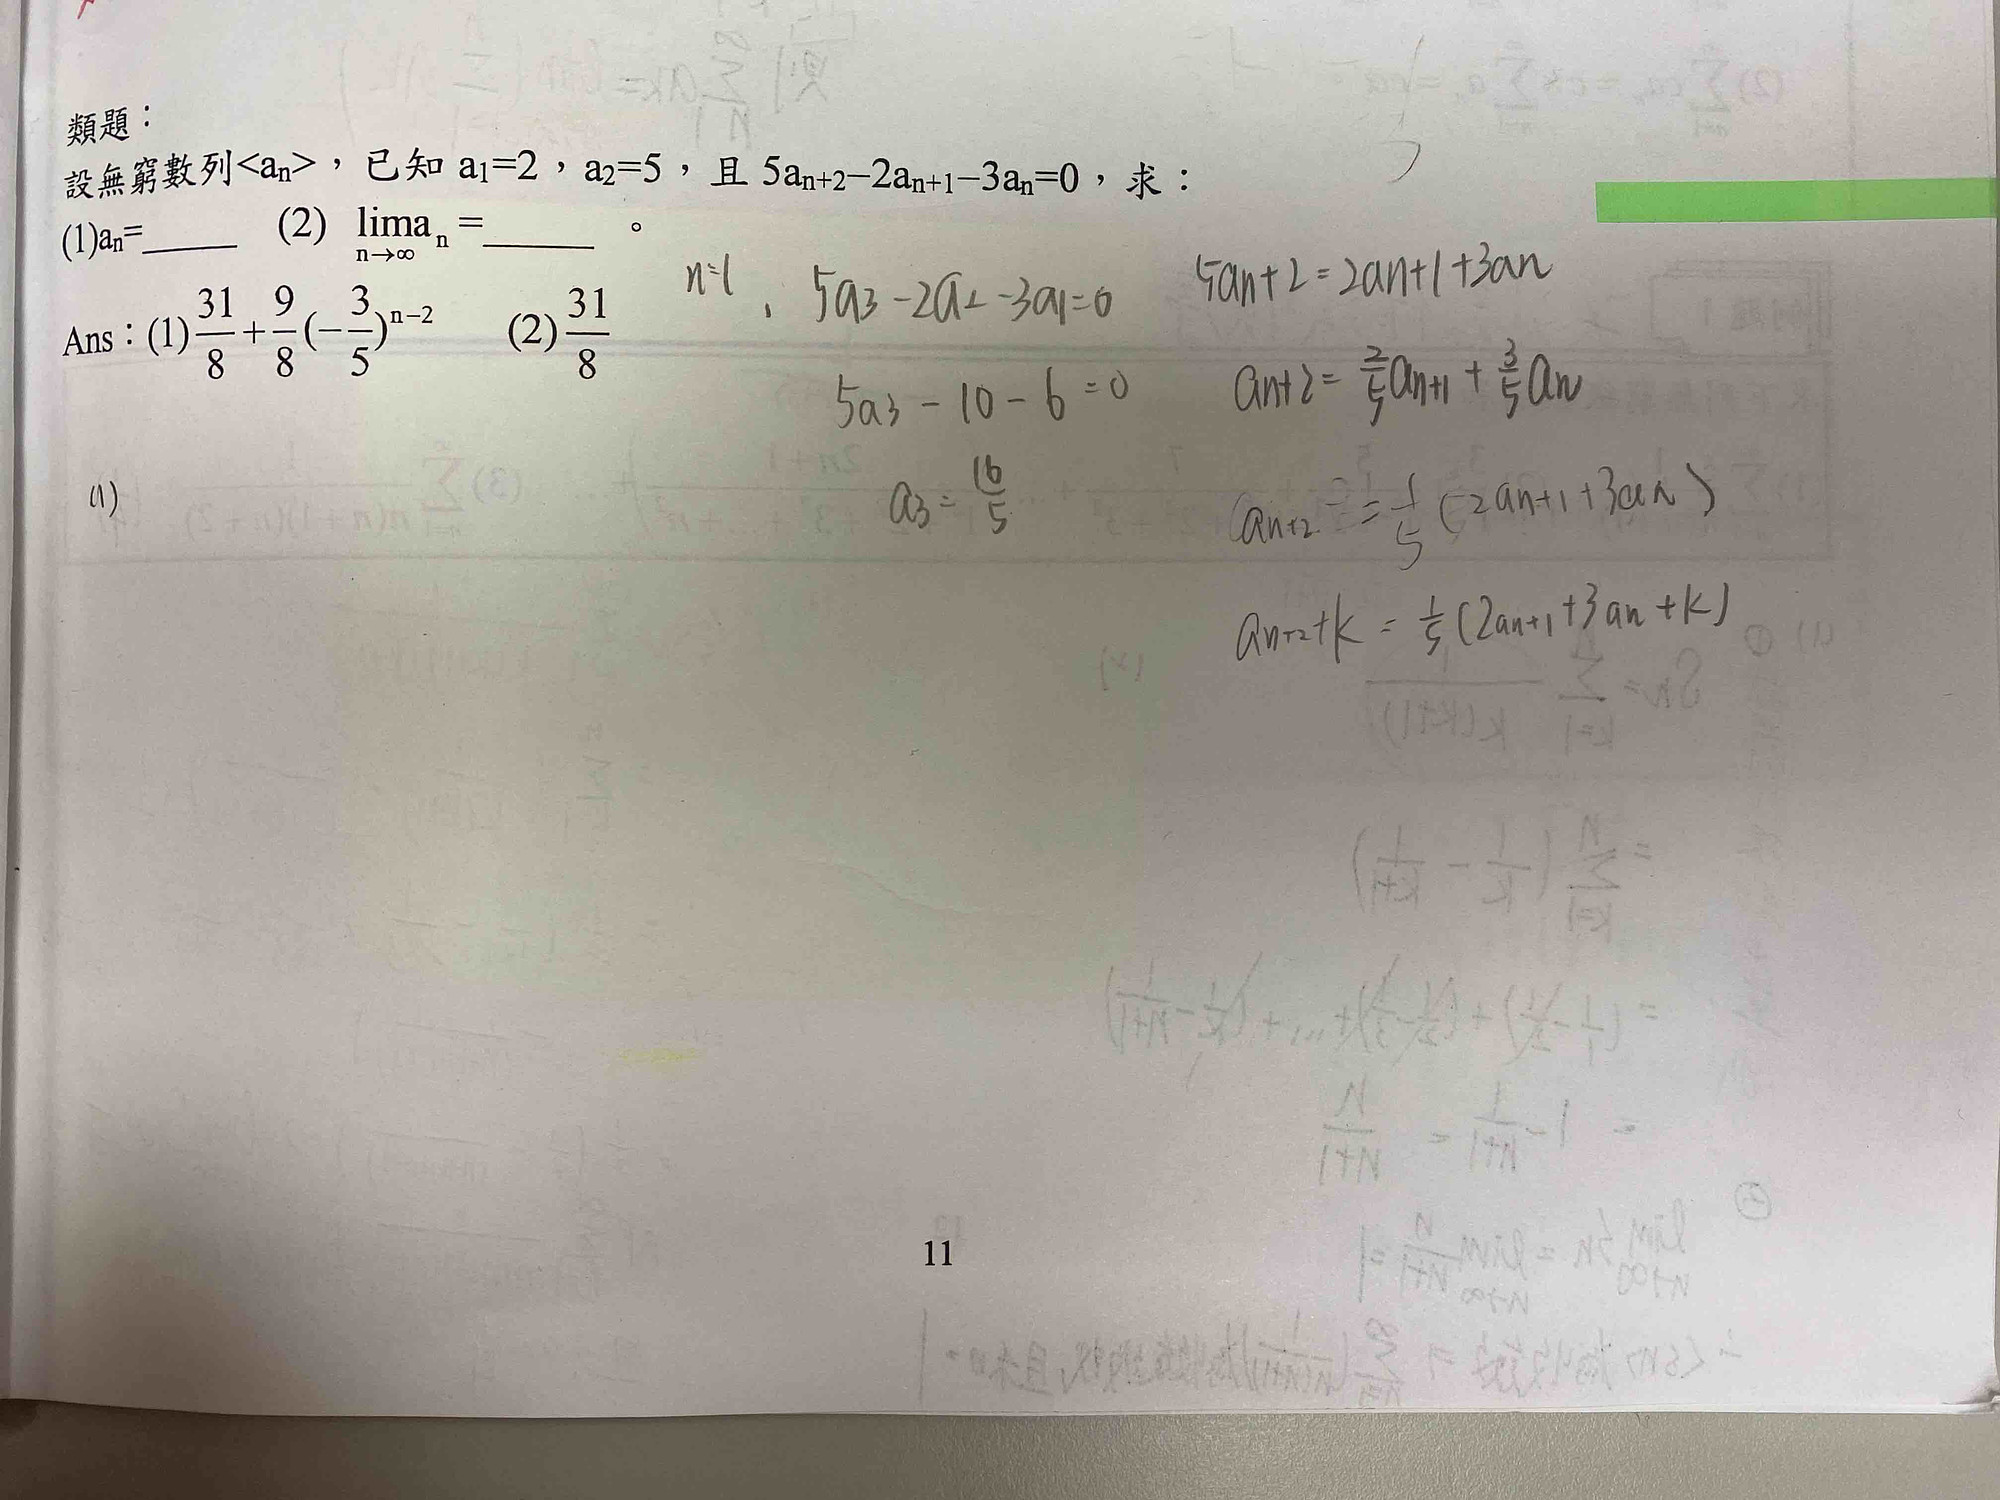 類題：
設無窮數列<aₙ>，已知 a₁=2，a₂=5，且 5aₙ₊₂−2aₙ₊₁−3aₙ=0，求：
(1)aₙ=_____ (2) lim aₙ =______ 。
n→∞
Ans：(1) 31/8 + 9/8 (−3/5)ⁿ⁻² (2) 31/8
n=1, 5a₃ −2a₂ −3a₁=0
5a₃ −10 −6 =0
a₃ = 16/5
5an+2 = 2an+1 +3an
an+2 = 2/5 aₙ₊₁ + 3/5 aₙ
aₙ₊₂ = = 1/5 (2an+1 +3an)
aₙ₊₂+k = 1/5 (2aₙ₊₁ +3an +k)
(1)
11